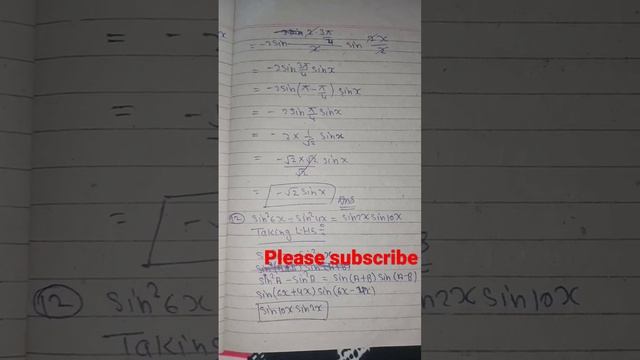 = -2sin 2·3π/4 /2 sin 2x/2
= -2sin 3π/4 sinx
= -2sin(π-π/4) sinx
= - 2sin π/4 sinx
= - 2 × 1/√2 sinx
= -√2×√2/√2 sinx
= -√2 sinx Ans
12) sin²6x - sin²4x = sin2x sin10x
Taking LHS =
Please subscribe
sin²A - sin²B = sin(A+B) sin(A-B)
sin(6x+4x) sin(6x-4x)
sin10x sin2x
12) sin²6x
in2x sin10x
Taking